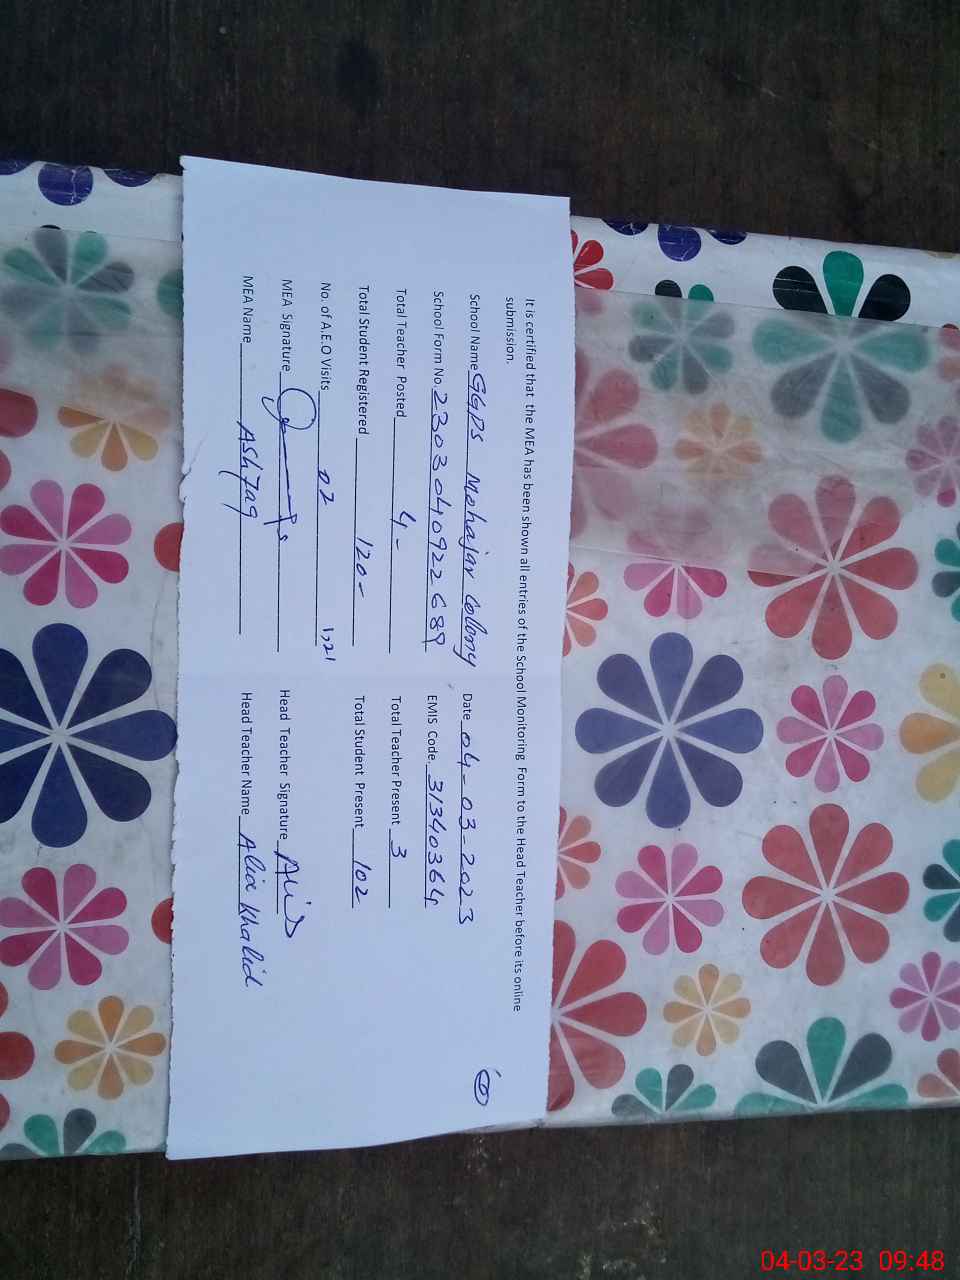 It is certified that the MEA has been shown all entries of the School Monitoring Form to the Head Teacher before its online
submission.
School Name GGPS Mohajar Colony Date 04-03-2023
School Form No. 2303040922689 EMIS Code. 31340364
Total Teacher Posted 4- Total Teacher Present 3
Total Student Registered 120- Total Student Present 102
No. of A.E.O Visits 02
MEA Signature Head Teacher Signature
MEA Name Ashfaq Head Teacher Name Alia Khalid
04-03-23 09:48